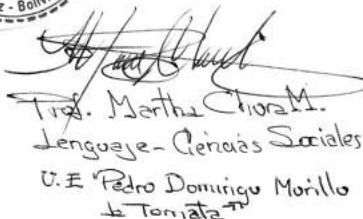 z - Boliv
Prof. Martha Chora M.
Lenguaje - Ciencias Sociales
U.E "Pedro Domingo Murillo
de Tomata"